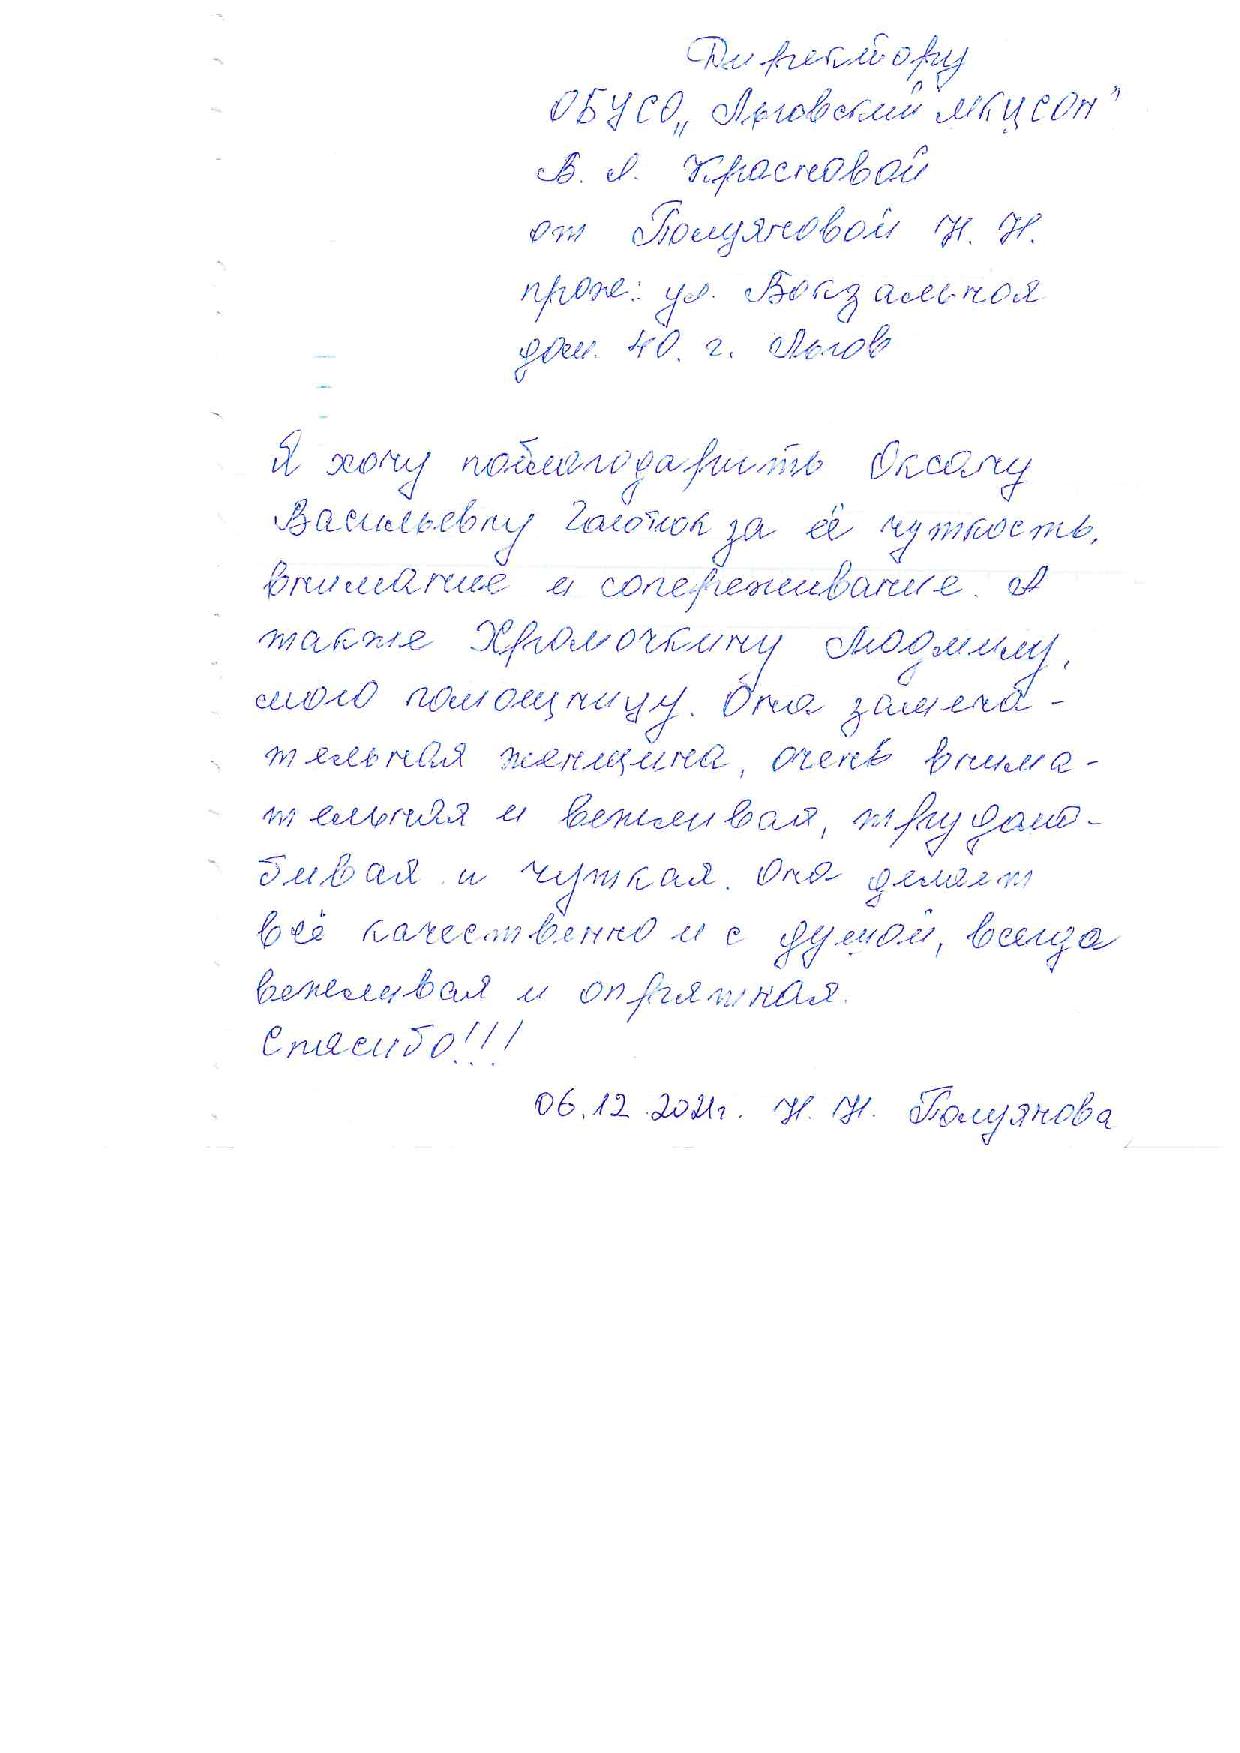 Директору
ОБУСО „Льговский МКЦСОН"
В. Л. Красновой
от Полуяновой Н. Н.
прож: ул. Вокзальная
дом. 40. г. Льгов
Я хочу поблагодарить Оксану
Васильевну за её чуткость,
внимание и сопереживание. А
также Хромочкину Людмилу,
мою помощницу. Она замеча-
тельная женщина, очень внима-
тельная и вежливая, трудолю-
бивая и чуткая. Она делает
всё качественно и с душой, всегда
вежливая и опрятная.
Спасибо!!!
06.12.2021г. Н. Н. Полуянова